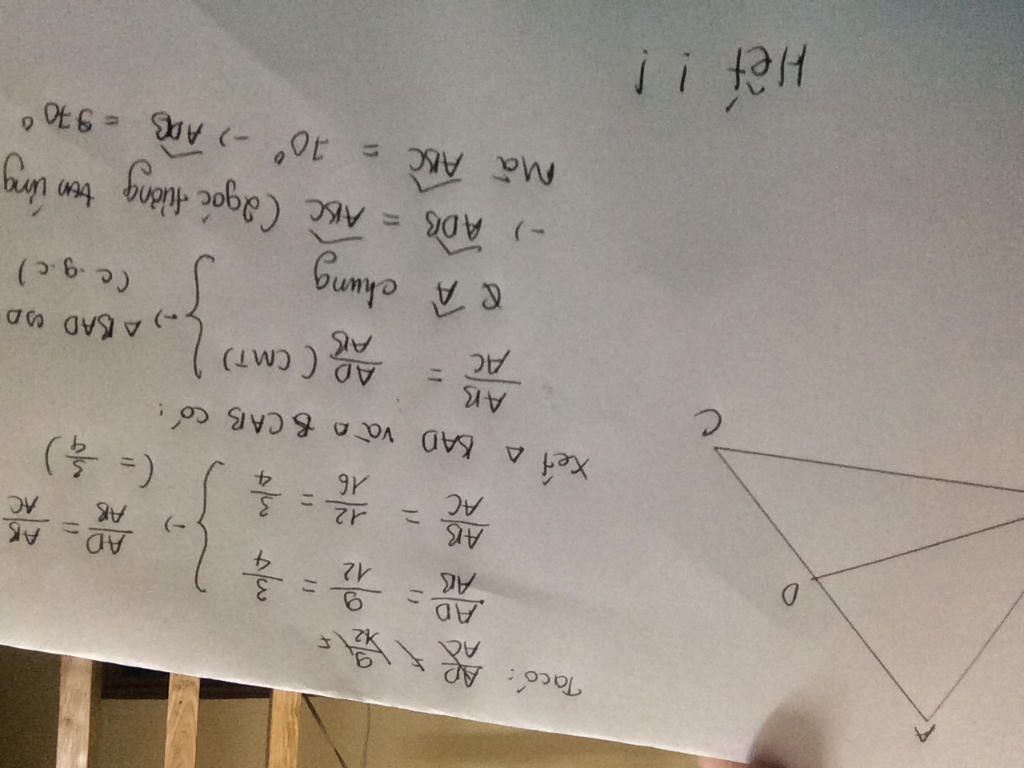 Ta có:
AD/AB = 9/12 = 3/4
AB/AC = 12/16 = 3/4
→ AD/AB = AB/AC (= 3/4)
Xét Δ BAD và Δ CAB có:
AB/AC = AD/AB (CMT)
& Â chung
→ Δ BAD ∽ Δ
(c.g.c)
→ ADB = ABC (2 góc tương ứng
Mà ABC = 70° → ADB = 970°
Hết !!
A
D
C